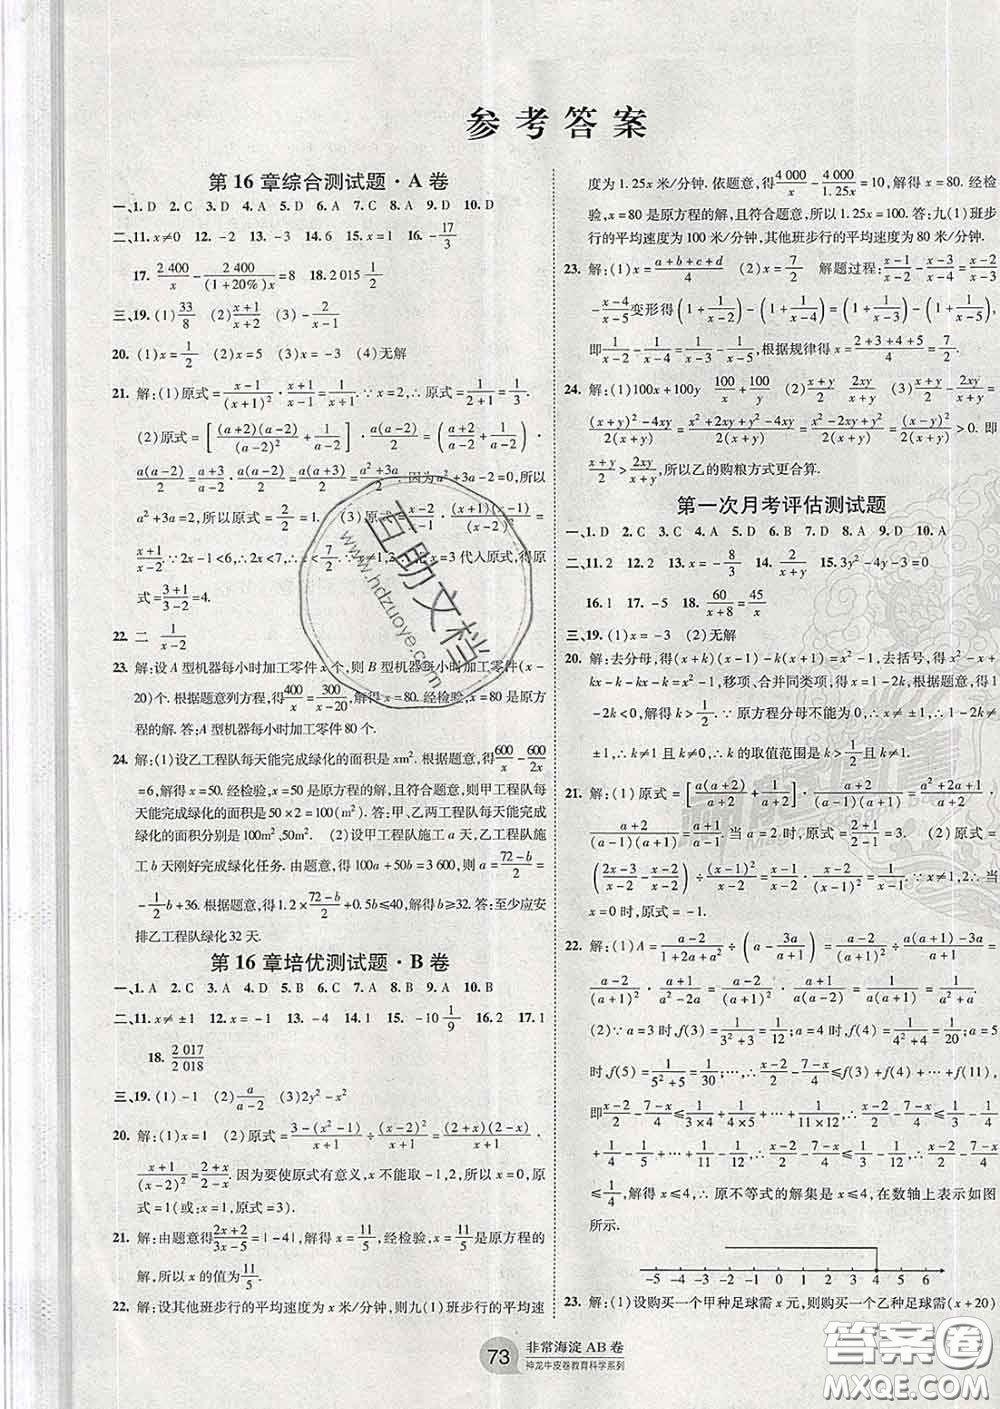 参考答案
第16章综合测试题·A卷
一、1. D 2. C 3. D 4. A 5. D 6. C 7. A 8. A 9. D 10. D
二、11. x≠0 12. -2 13. -4 14. 6 15. x=1 16. -17/3
17. 2 400/x - 2 400/(1+20%)x = 8 18. 2 015 1/2
三、19. (1) 33/8 (2) (x+1)/(x+2) (3) -2/(x-1)
20. (1)x=1/2 (2)x=5 (3)x=-3 (4)无解
21. 解:(1)原式=(x-1)/(x+1)²·(x+1)/(x-1)=1/(x+1).∵x=2,∴原式=1/(2+1)=1/3.
(2)原式=[(a+2)(a-2)/(a-2)²+1/(a-2)]·a(a-2)/2=((a+2)/(a-2)+1/(a-2))·
a(a-2)/2=(a+3)/(a-2)·a(a-2)/2=(a²+3a)/2.因为a²+3a-2=0,所以
a²+3a=2,原式=2/2=1. (3)原式=(x-2)/(x-1)·(x+1)(x-1)/(x-2)²=
(x+1)/(x-2).∵2x-1<6,∴2x<7,∴x<7/2.∵x≠1,2,∴把x=3代入原式,得原
式=(3+1)/(3-2)=4.
22. 二 1/(x-2)
23. 解:设A型机器每小时加工零件x个,则B型机器每小时加工零件(x-
20)个.根据题意列方程,得400/x=300/(x-20),解得x=80.经检验,x=80是原方
程的解.答:A型机器每小时加工零件80个.
24. 解:(1)设乙工程队每天能完成绿化的面积是xm².根据题意,得600/x-600/2x
=6,解得x=50.经检验,x=50是原方程的解,且符合题意,所以甲工程队每天
能完成绿化的面积是50×2=100(m²).答:甲、乙两工程队每天能完成
绿化的面积分别是100m²,50m². (2)设甲工程队施工a天,乙工程队施
工b天刚好完成绿化任务.由题意,得100a+50b=3 600,则a=(72-b)/2=
-1/2b+36.根据题意,得1.2×(72-b)/2+0.5b≤40,解得b≥32.答:至少应安
排乙工程队绿化32天.
第16章培优测试题·B卷
一、1. A 2. C 3. C 4. D 5. B 6. C 7. A 8. B 9. A 10. B
二、11. x≠±1 12. x=-1 13. -4 14. 1 15. -10 1/9 16. 2 17. 1
18. 2 017/2 018
三、19. (1)-1 (2)a/(a-2) (3)2y²-x²
20. 解:(1)x=1 (2)原式=(3-(x²-1))/(x+1)÷(x-2)²/(x+1)=(2+x)(2-x)/(x+1)·
(x+1)/(x-2)²=(2+x)/(2-x).因为要使原式有意义,x不能取-1或2,所以x=0,原
式=1(或:x=1,原式=3).
21. 解:由题意得(2x+2)/(3x-5)=|-4|,解得x=11/5,经检验,x=11/5是原方程的
解,所以x的值为11/5.
22. 解:设其他班步行的平均速度为x米/分钟,则九(1)班步行的平均速
度为1.25x米/分钟.依题意,得4 000/x-4 000/1.25x=10,解得x=80.经检
验,x=80是原方程的解,且符合题意,所以1.25x=100.答:九(1)班步
行的平均速度为100米/分钟,其他班步行的平均速度为80米/分钟.
23. 解:(1)x=(a+b+c+d)/4 (2)x=7/2 解题过程:(x-1)/(x-2)-(x-3)/(x-4)=(x-2)/(x-3)
-(x-4)/(x-5)变形得(1+1/(x-2))-(1+1/(x-4))=(1+1/(x-3))-(1+1/(x-5)),
即1/(x-2)-1/(x-4)=1/(x-3)-1/(x-5),根据规律得x=(2+3+4+5)/4=7/2.
24. 解:(1)100x+100y 100/x+100/y (2)(x+y)/2 2xy/(x+y) (x+y)/2-2xy/(x+y)=
((x+y)²-4xy)/2(x+y)=(x²+2xy+y²-4xy)/2(x+y)=(x²-2xy+y²)/2(x+y)=(x-y)²/2(x+y)>0.即
(x+y)/2>2xy/(x+y),所以乙的购粮方式更合算.
第一次月考评估测试题
一、1. D 2. C 3. C 4. A 5. D 6. B 7. D 8. A 9. D 10. A
二、11. 2 12. 2 13. x=-8/3 14. x/2 15. 3y²-4y-3=0
16. 1 17. -5 18. 60/(x+8)=45/x
三、19. (1)x=-3 (2)无解
20. 解:去分母,得(x+k)(x-1)-k(x+1)=x²-1,去括号,得x²-x+
kx-k-kx-k=x²-1,移项、合并同类项,得x=1-2k.根据题意,得1
-2k<0,解得k>1/2.∵原方程分母不能为0,∴x≠±1,∴1-2k≠
±1,∴k≠1且k≠0,∴k的取值范围是k>1/2且k≠1.
21. 解:(1)原式=[a(a+2)/(a+2)²+1/(a+2)]·(a+2)²/(a+1)(a-1)=(a+1)/(a+2)·
(a+2)²/(a-1)(a+1)=(a+2)/(a-1).当a=2时,原式=(2+1)/1=3. (2)原式=
((2x-3)/(x-2)-(x-2)/(x-2))÷(x-1)²/(x-2)=(x-1)/(x-2)·(x-2)/(x-1)²=1/(x-1).∵x≠1,2,∴当
x=0时,原式=-1.
22. 解:(1)A=(a-2)/(1+2a+a²)÷(a-3a/(a+1))=(a-2)/(a+1)²÷(a(a+1)-3a)/(a+1)=
(a-2)/(a+1)²·(a+1)/(a²-2a)=(a-2)/(a+1)²·(a+1)/a(a-2)=1/a(a+1)=1/(a²+a).
(2)∵a=3时,f(3)=1/(3²+3)=1/12;a=4时,f(4)=1/(4²+4)=1/20;a=5
时,f(5)=1/(5²+5)=1/30;…∴(x-2)/2-(7-x)/4≤f(3)+f(4)+…+f(11),
即(x-2)/2-(7-x)/4≤1/(3×4)+1/(4×5)+…+1/(11×12),∴(x-2)/2-(7-x)/4≤1/3-1/4
+1/4-1/5+…+1/11-1/12,∴(x-2)/2-(7-x)/4≤1/3-1/12,∴(x-2)/2-(7-x)/4
≤1/4,解得x≤4,∴原不等式的解集是x≤4,在数轴上表示如图
所示.
-5 -4 -3 -2 -1 0 1 2 3 4 5 6
23. 解:(1)设购买一个甲种足球需x元,则购买一个乙种足球需(x+20)
73
非常海淀AB卷
神龙牛皮卷教育科学系列
互助文档
www.hdzuoye.com
答案圈
MXQE.COM